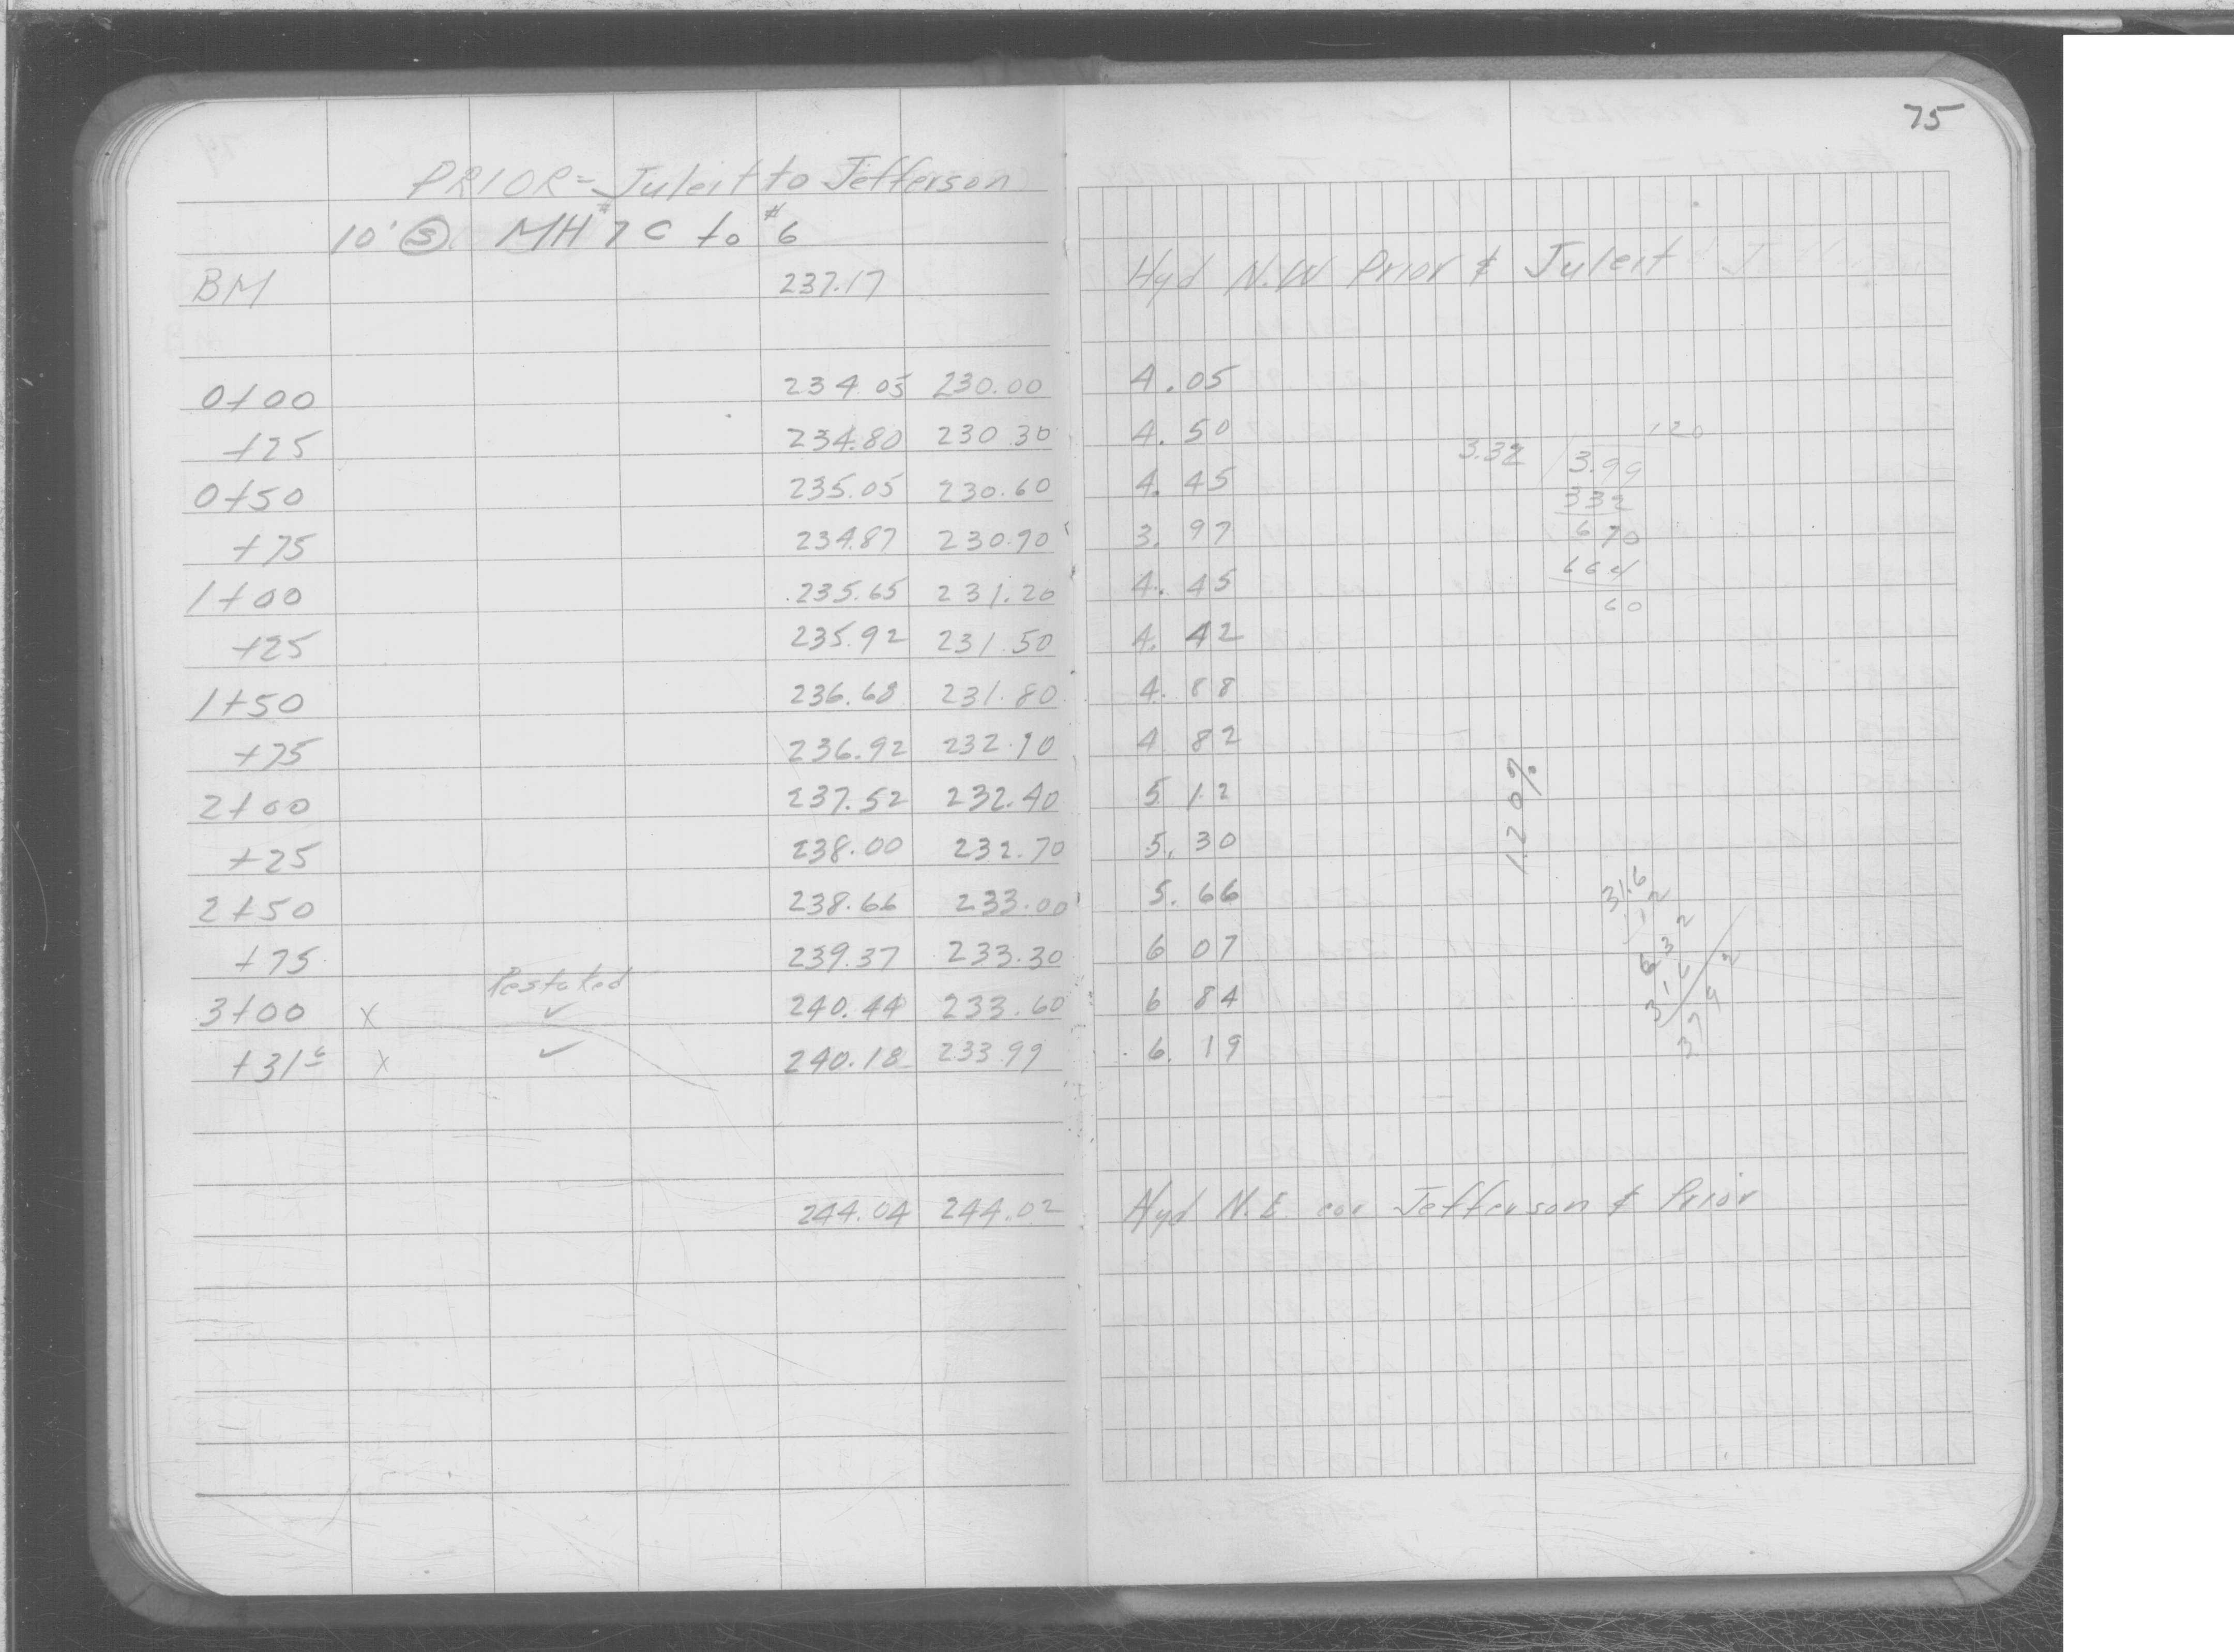 75
PRIOR = Juleit to Jefferson
10' S MH #7C to #6
BM 237.17 Hyd N.W Prior & Juleit
0+00 234.05 230.00 4.05
+25 234.80 230.30 4.50
0+50 235.05 230.60 4.45
+75 234.87 230.90 3.97
1+00 235.65 231.20 4.45
+25 235.92 231.50 4.42
1+50 236.68 231.80 4.88
+75 236.92 232.10 4 82
2+00 237.52 232.40 5 12
+25 238.00 232.70 5.30
2+50 238.66 233.00 5.66
+75 239.37 233.30 6 07
Restaked
3+00 X ✓ 240.44 233.60 6 84
+31⁶ X ✓ 240.18 233.99 6.19
244.04 244.02 Hyd N.E cor Jefferson & Prior
120
3.32 3.99
332
670
664
60
1.20%
31.6
1 2
6 3 2
3 1 6
3 7 9 2